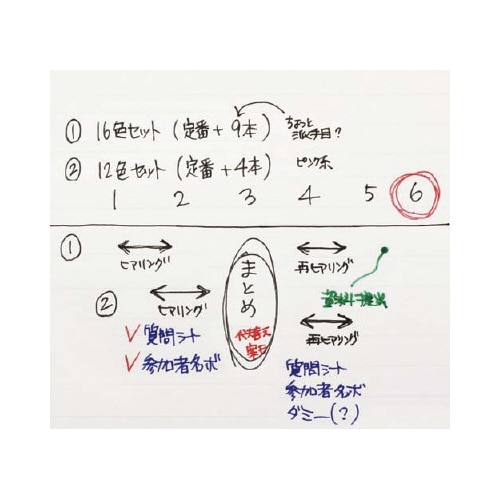 ① 16色セット (定番+9本) ちょっと派手目?
② 12色セット (定番+4本) ピンク系
1 2 3 4 5 6
① ヒアリング まとめ 再ヒアリング
② ヒアリング 再ヒアリング
に提出
✓ 質問シート
✓ 参加者名ボ
質問シート
参加者名ボ
ダミー(?)